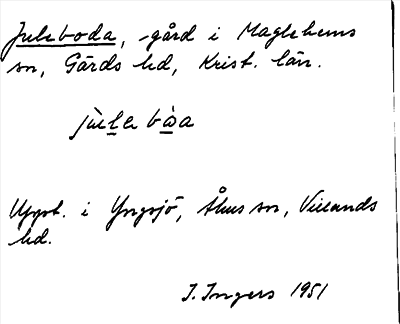 Juleboda, gård i Maglehems
sn, Gärds hd, Krist. län.
jùle bòa
Uppt. i Yngsjö, Åhus sn, Villands
hd.
I. Ingers 1951